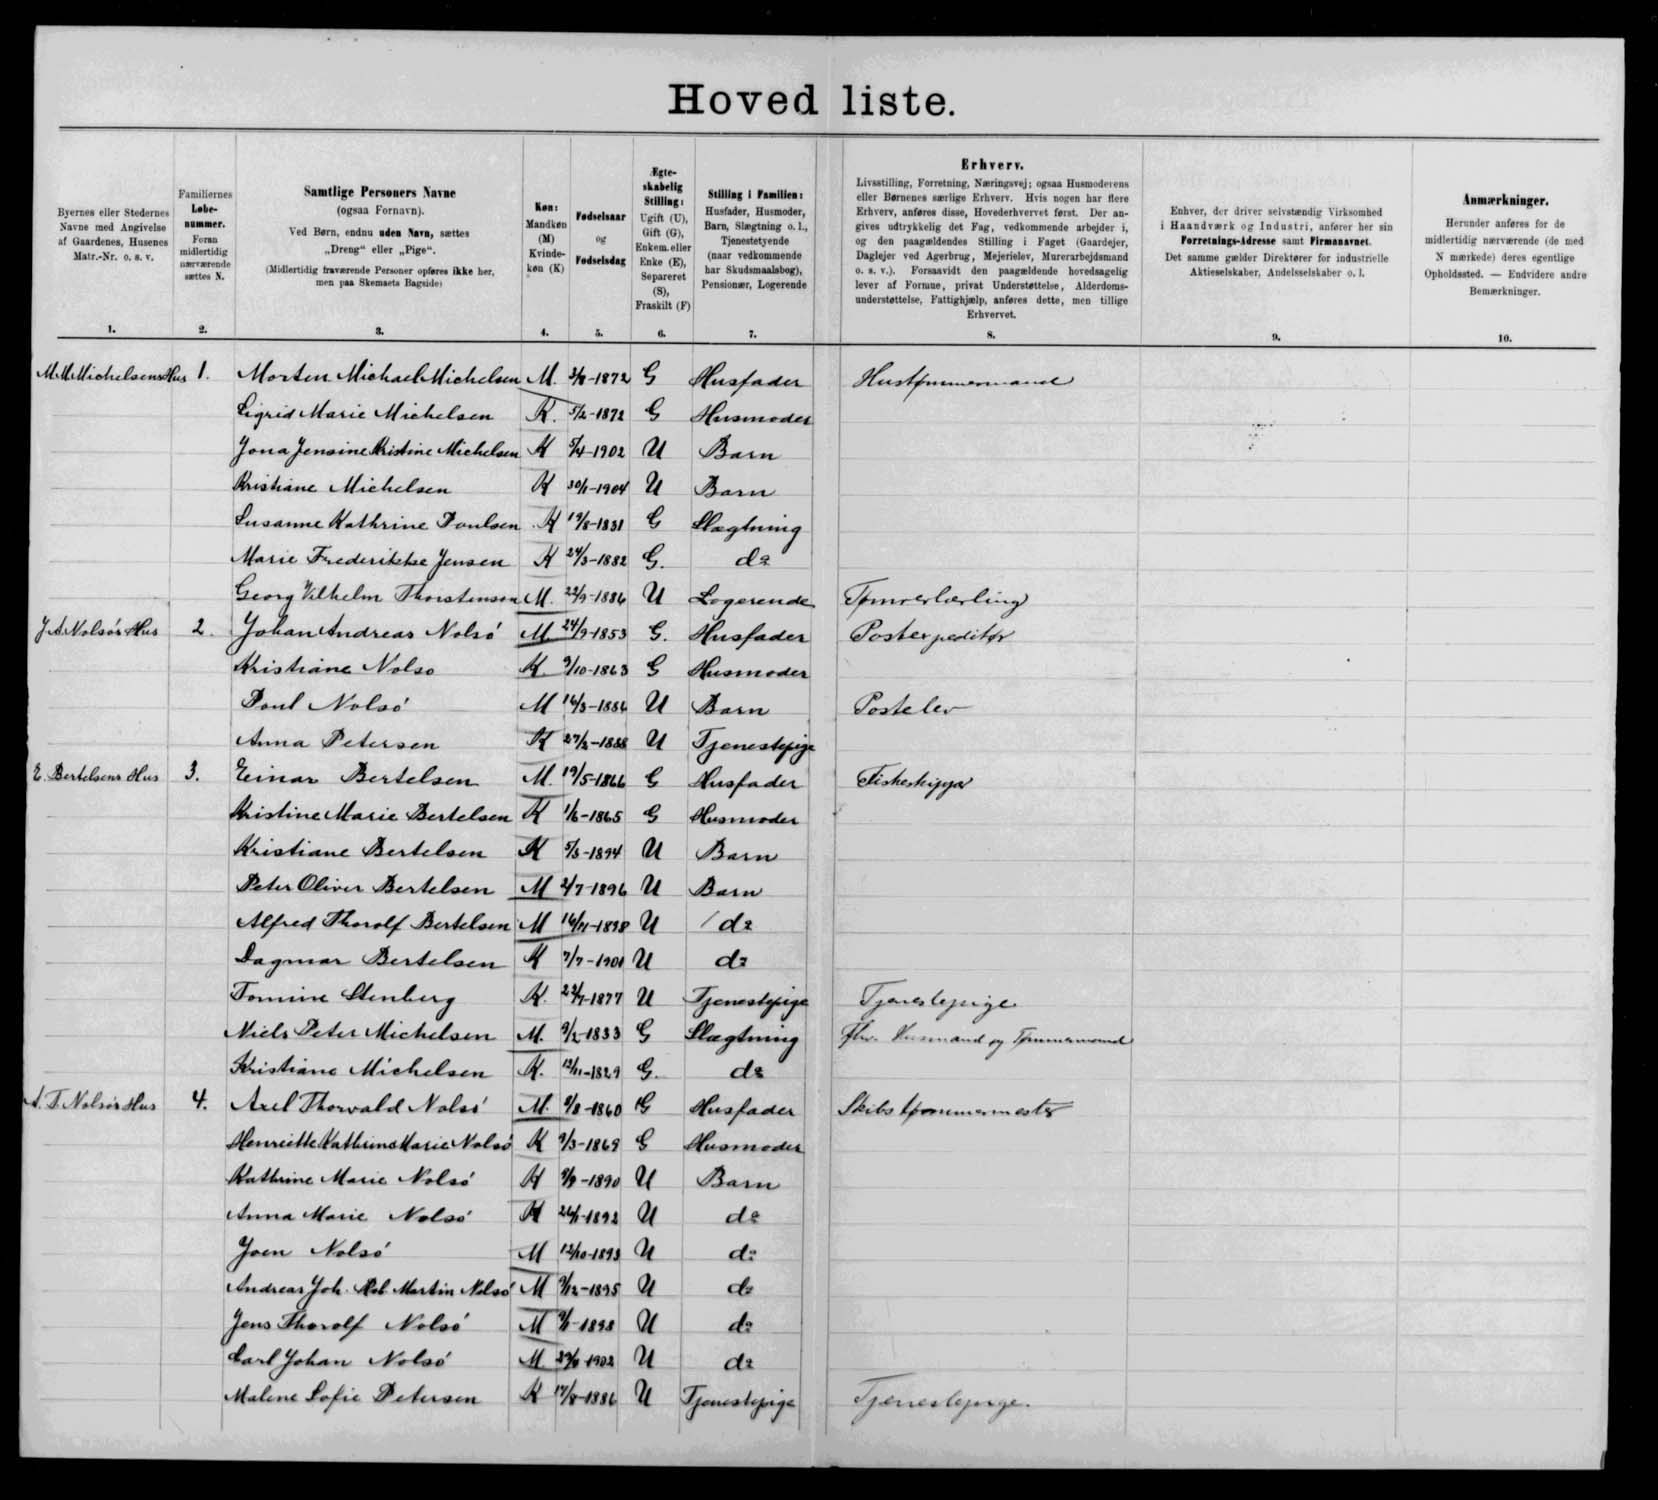 Hoved liste.
Byernes eller Stedernes
Navne med Angivelse
af Gaardenes, Husenes
Matr.-Nr. o. s. v.
1.
Familiernes
Løbe-
nummer.
Foran
midlertidig
nærværende
sættes N.
2.
Samtlige Personers Navne
(ogsaa Fornavn).
Ved Børn, endnu uden Navn, sættes
„Dreng“ eller „Pige“.
(Midlertidig fraværende Personer opføres ikke her,
men paa Skemaets Bagside)
3.
Køn:
Mandkøn
(M)
Kvinde-
køn (K)
4.
Fødselsaar
og
Fødselsdag
5.
Ægte-
skabelig
Stilling:
Ugift (U),
Gift (G),
Enkem. eller
Enke (E),
Separeret
(S),
Fraskilt (F)
6.
Stilling i Familien:
Husfader, Husmoder,
Barn, Slægtning o. l.,
Tjenestetyende
(naar vedkommende
har Skudsmaalsbog),
Pensionær, Logerende
7.
Erhverv.
Livsstilling, Forretning, Næringsvej; ogsaa Husmoderens
eller Børnenes særlige Erhverv. Hvis nogen har flere
Erhverv, anføres disse, Hovederhvervet først. Der an-
gives udtrykkelig det Fag, vedkommende arbejder i,
og den paagældendes Stilling i Faget (Gaardejer,
Daglejer ved Agerbrug, Mejerielev, Murerarbejdsmand
o. s. v.). Forsaavidt den paagældende hovedsagelig
lever af Formue, privat Understøttelse, Alderdoms-
understøttelse, Fattighjælp, anføres dette, men tillige
Erhvervet.
8.
Enhver, der driver selvstændig Virksomhed
i Haandværk og Industri, anfører her sin
Forretnings-Adresse samt Firmanavnet.
Det samme gælder Direktører for industrielle
Aktieselskaber, Andelsselskaber o. l.
9.
Anmærkninger.
Herunder anføres for de
midlertidig nærværende (de med
N mærkede) deres egentlige
Opholdssted. — Endvidere andre
Bemærkninger.
10.
M. M. Michelsens Hus 1. Morten Michael Michelsen M. -1872 G Husfader Hustømmermand
Sigrid Marie Michelsen K. 5/2-1872 G Husmoder
Jona Jensine Kristine Michelsen K 5/4-1902 U Barn
Kristiane Michelsen K 30/1-1904 U Barn
Susanne Kathrine Poulsen K 19/8-1831 G Slægtning
Marie Frederikke Jensen K 24/3-1882 G. do
Georg Vilhelm Thorstensen M. 22/9-1886 U Logerende Tømrerlærling
J. A. Nolsös Hus 2. Johan Andreas Nolsö M 24/9-1853 G. Husfader Postexpeditør
Kristiane Nolso K. 9/10-1863 G Husmoder
Poul Nolsö M 16/3-1886 U Barn Postelev
Anna Petersen K 27/2-1888 U Tjenestepige
E. Bertelsens Hus 3. Einar Bertelsen M. 19/5-1866 G Husfader Fiskeskipper
Kristine Marie Bertelsen K 1/6-1865 G Husmoder
Kristiane Bertelsen K 5/3-1894 U Barn
Peter Oliver Bertelsen M 2/7-1896 U Barn
Alfred Thorolf Bertelsen M 16/11-1898 U do
Dagmar Bertelsen K 7/7-1901 U do
Tomine Stenberg K. -1877 U Tjenestepige Tjenestepige
Niels Peter Michelsen M. 9/2-1833 G Slægtning fhv. Husmand og Tømmermand
Kristiane Michelsen K. 12/11-1829 G. do
A. T. Nolsös Hus 4. Axel Thorvald Nolsö M. 9/8-1860 G Husfader Skibstømmermester
Henriette Kathrine Marie Nolsö K 9/3-1869 G Husmoder
Kathrine Marie Nolsö K 9/9-1890 U Barn
Anna Marie Nolsö K 26/1-1892 U do
Joen Nolsö M 12/10-1893 U do
Andreas Joh. Rob. Martin Nolsö M 9/12-1895 U do
Jens Thorolf Nolsö M -1898 U do
Carl Johan Nolsö M -1902 U do
Malene Sofie Petersen K 17/8-1886 U Tjenestepige Tjenestepige.